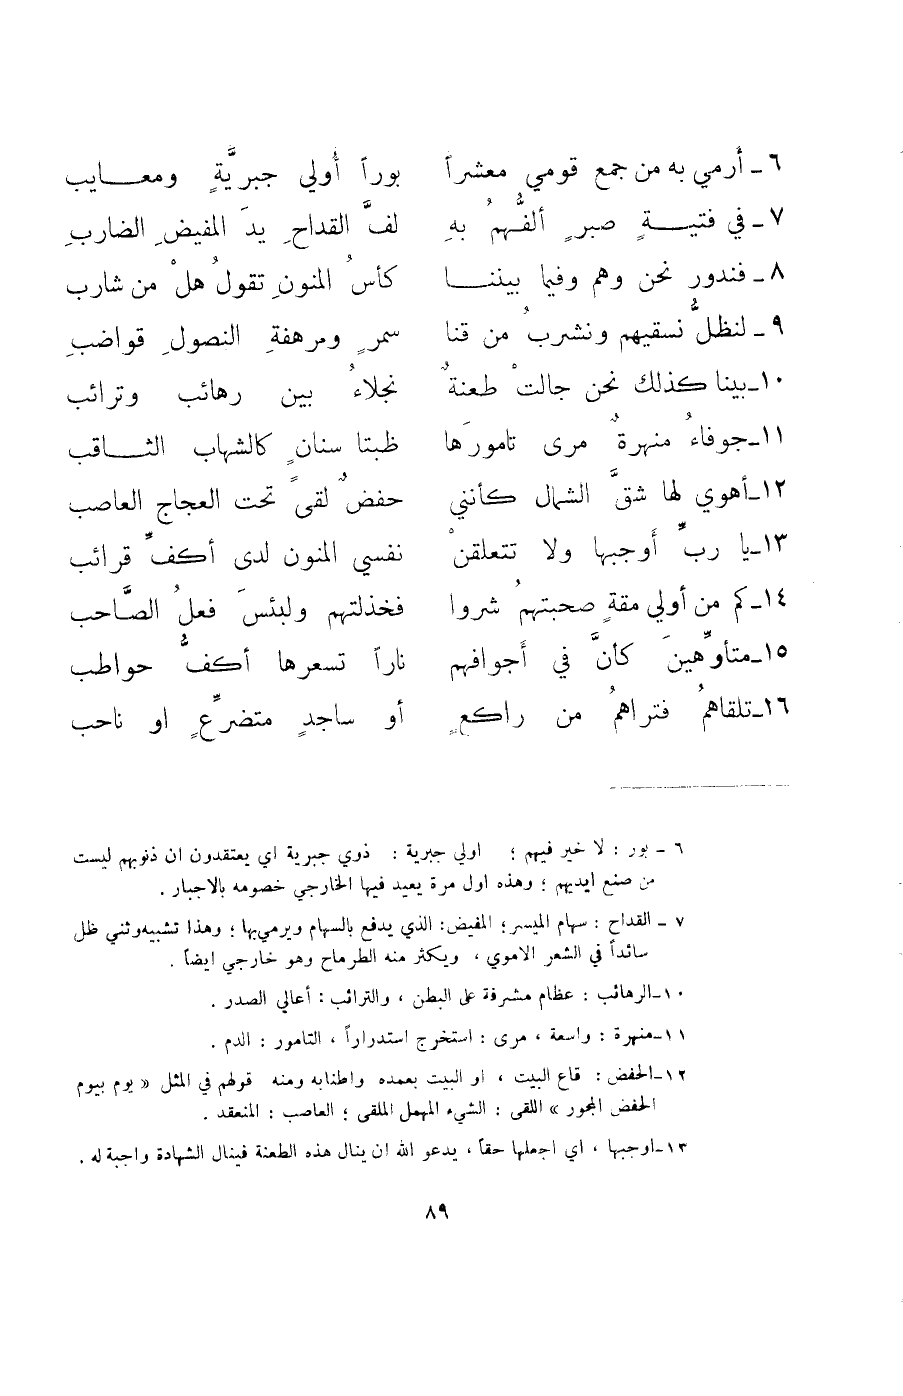 ٦ ـ أرمي به من جمع قومي معشراً بوراً أُولي جبريَّةٍ ومعـــايب
٧ ـ في فتيـــةٍ صبرٍ ألفُّهمُ بهِ لفَّ القداحِ يدَ المفيضِ الضاربِ
٨ ـ فندور نحن وهم وفيما بيننـــا كأسُ المنونِ تقولُ هلْ من شارب
٩ ـ لنظلُّ نسقيهم ونشربُ من قنا سمرٍ ومرهفةِ النصولِ قواضبِ
١٠ـبينا كذلك نحن جالتْ طعنةٌ نجلاءُ بين رهائب وترائب
١١ـجوفاءُ منهرةٌ مرى تامورَها ظبتا سنانٍ كالشهاب الثـــاقب
١٢ـأهوي لها شقَّ الشمال كأنني حفضٌ لقىً تحت العجاج العاصب
١٣ـيا ربِّ أوجبها ولا تتعلقنْ نفسي المنون لدى أكفِّ قرائب
١٤ـكم من أولي مقةٍ صحبتهمُ شروا فخذلتهم ولبئسَ فعلُ الصَّاحب
١٥ـمتأوِّهينَ كأنَّ في أجوافهم ناراً تسعرها أكفُّ حواطب
١٦ـتلقاهمُ فتراهمُ من راكعٍ أو ساجدٍ متضرِّعٍ او ناحب
٦ ـ بور : لا خير فيهم ؛ اولي جبرية : ذوي جبرية اي يعتقدون ان ذنوبهم ليست
من صنع ايديهم ؛ وهذه اول مرة يعيد فيها الخارجي خصومه بالاجبار .
٧ ـ القداح : سهام الميسر ؛ المفيض : الذي يدفع بالسهام ويرمي بها ؛ وهذا تشبيه وثني ظل
سائداً في الشعر الاموي ، ويكثر منه الطرماح وهو خارجي ايضاً .
١٠ـالرهائب : عظام مشرفة على البطن ، والترائب : أعالي الصدر .
١١ـمنهرة : واسعة ، مرى : استخرج استدراراً ، التامور : الدم .
١٢ـالحفض : قاع البيت ، او البيت بعمده واطنابه ومنه قولهم في المثل « يوم بيوم
الحفض المجور » اللقى : الشيء المهمل الملقى ؛ العاصب : المنعقد .
١٣ـاوجبها ، اي اجعلها حقاً ، يدعو الله ان ينال هذه الطعنة فينال الشهادة واجبة له .
٨٩